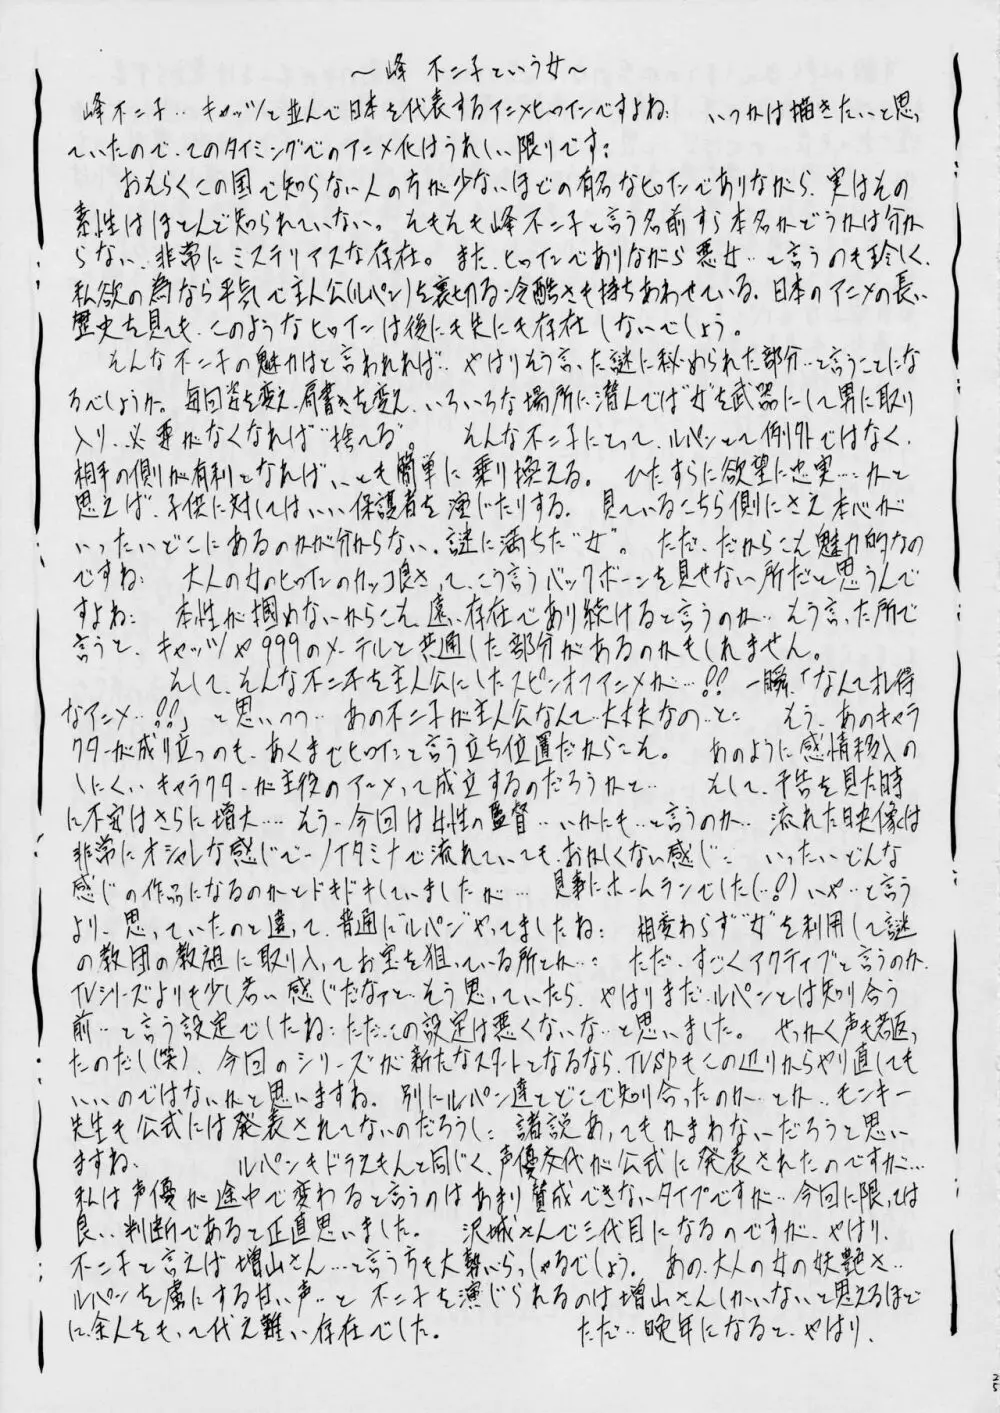 ～峰 不二子という女～
峰不二子‥キャッツと並んで日本を代表するアニメヒロインですよね：　いつかは描きたいと思っ
ていたので、このタイミングでのアニメ化はうれしい限りです：
おそらくこの国で知らない人の方が少ないほどの有名なヒロインでありながら、実はその
素性はほとんど知られていない。そもそも峰不二子と言う名前すら本名かどうかは分か
らない、非常にミステリアスな存在。また、ヒロインでありながら悪女‥と言うのも珍しく、
私欲の為なら平気で主人公(ルパン)を裏切る冷酷さも持ちあわせている。日本のアニメの長い
歴史を見ても、このようなヒロインは後にも先にも存在しないでしょう。
そんな不二子の魅力はと言われれば‥やはりそう言った謎に秘められた部分‥と言うことにな
るでしょうか。毎回姿を変え、肩書きを変え、いろいろな場所に潜んでは“女”を武器にして男に取り
入り、必要がなくなれば“捨てる”。　そんな不二子にとって、ルパンとて例外ではなく、
相手の側が有利となれば、いとも簡単に乗り換える。　ひたすらに欲望に忠実‥‥かと
思えば、子供に対してはいい保護者を演じたりする。　見ているこちら側にさえ本心が
いったいどこにあるのかが分からない、謎に満ちた“女”。　ただ、だからこそ魅力的なの
ですね：　大人の女のヒロインのカッコ良さって、こう言うバックボーンを見せない所だと思うんで
すよね：　本性が掴めないからこそ遠い存在であり続けると言うのか‥そう言った所で
言うと、キャッツや999のメーテルと共通した部分があるのかもしれません。
そして、そんな不二子を主人公にしたスピンオフアニメが‥‥!!　一瞬、「なんてお得
なアニメ‥!!」と思いつつ‥あの不二子が主人公なんて‥大丈夫なの‥と：　もう、あのキャラ
クターが成り立つのも、あくまでヒロインと言う立ち位置だからこそ。　あのように感情移入の
しにくいキャラクターが主役のアニメって成立するのだろうかと‥　そして、予告を見た時
に不安はさらに増大‥‥もう、今回は女性の監督‥いかにも‥と言うのか‥流れた映像は
非常にオシャレな感じで―ノイタミナで流れていても、おかしくない感じ：　いったいどんな
感じの作品になるのかとドキドキしていましたが‥‥見事にホームランでした(‥!)いや‥と言う
より、思っていたのと違って、普通に“ルパン”やってましたね：　相変わらず“女”を利用して謎
の教団の教祖に取り入ってお宝を狙っている所とか‥：　ただ、すごくアクティブと言うのか、
TVシリーズよりも少し若い感じだなァと‥そう思っていたら、やはりまだ、ルパンとは知り合う
前‥と言う設定でしたね：ただ、この設定は悪くないな‥と思いました。　せっかく声も若返っ
たのだし(笑)、今回のシリーズが新たなスタートとなるなら、TVSPもこの辺りからやり直しても
いいのではないかと思いますね。別にルパン達とどこで知り合ったのか‥とか‥モンキー
先生も公式には発表されてないのだろうし：諸説あってもかまわないーだろうと思い
ますね。　ルパンもドラえもんと同じく、声優交代が公式に発表されたのですが‥‥
私は声優が途中で変わると言うのはあまり賛成できないタイプですが‥今回に限っては
良い判断であると正直思いました。　沢城さんで三代目になるのですが、やはり、
不二子と言えば増山さん‥‥と言う方も大勢いらっしゃるでしょう。　あの、大人の女の妖艶さ‥
ルパンを虜にする甘い声‥と　不二子を演じられるのは増山さんしかいないと思えるほど
に余人をもって代え難い存在でした。　ただ‥晩年になると、やはり、
25